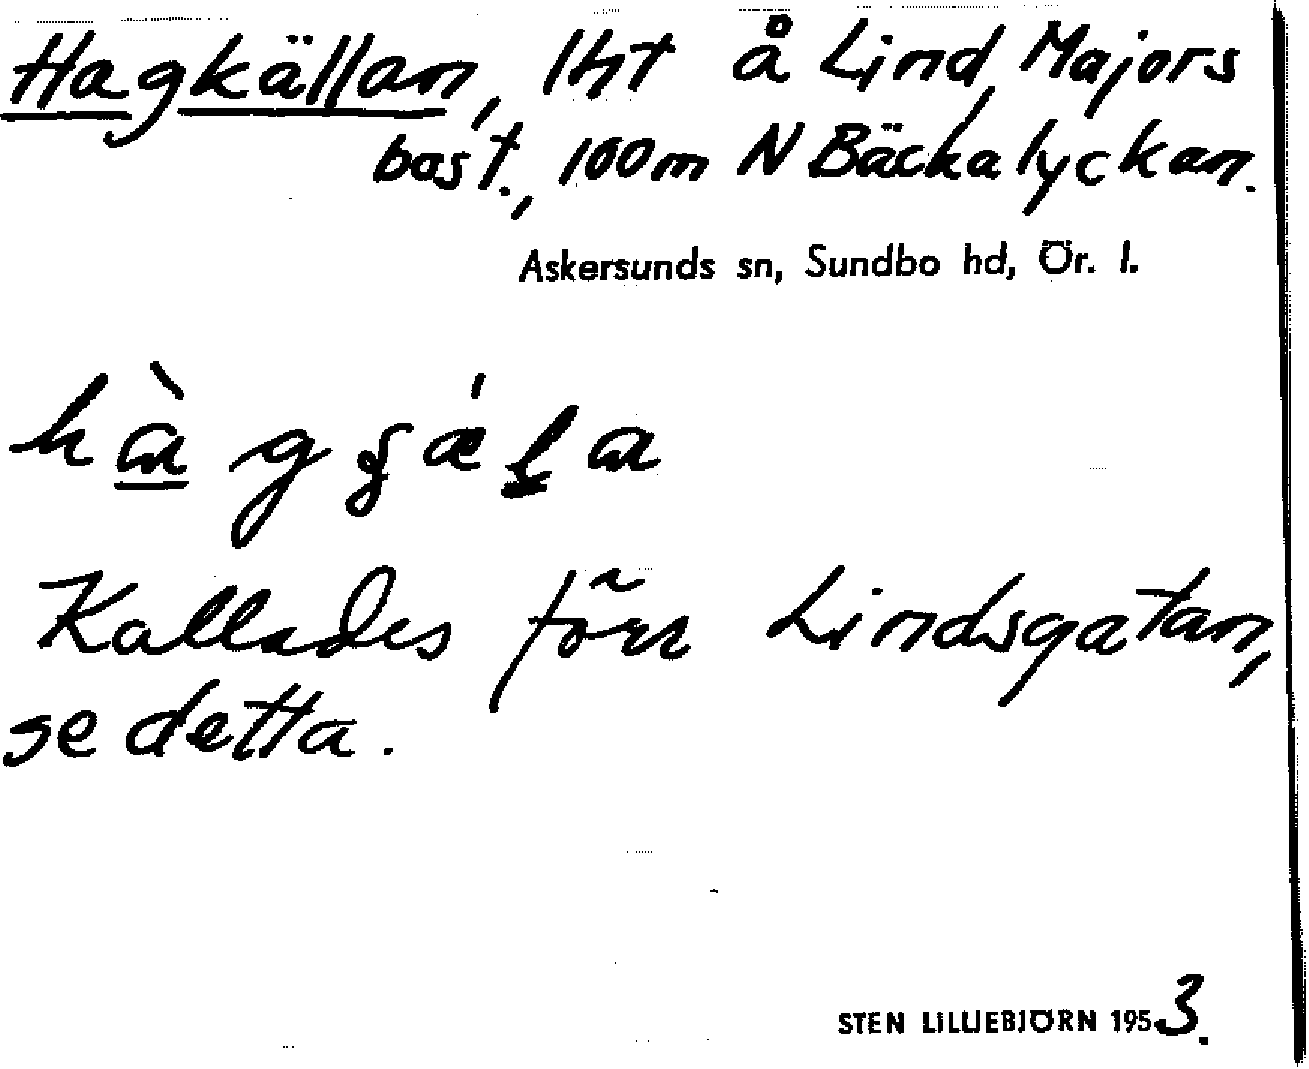 Hagkällan, lht å Lind Majors
bost., 100m N Bäckalyckan.
Askersunds sn, Sundbo hd, Ör. l.
Kallades förr Lindsgatan,
se detta.
STEN LILLIEBJÖRN 1953.